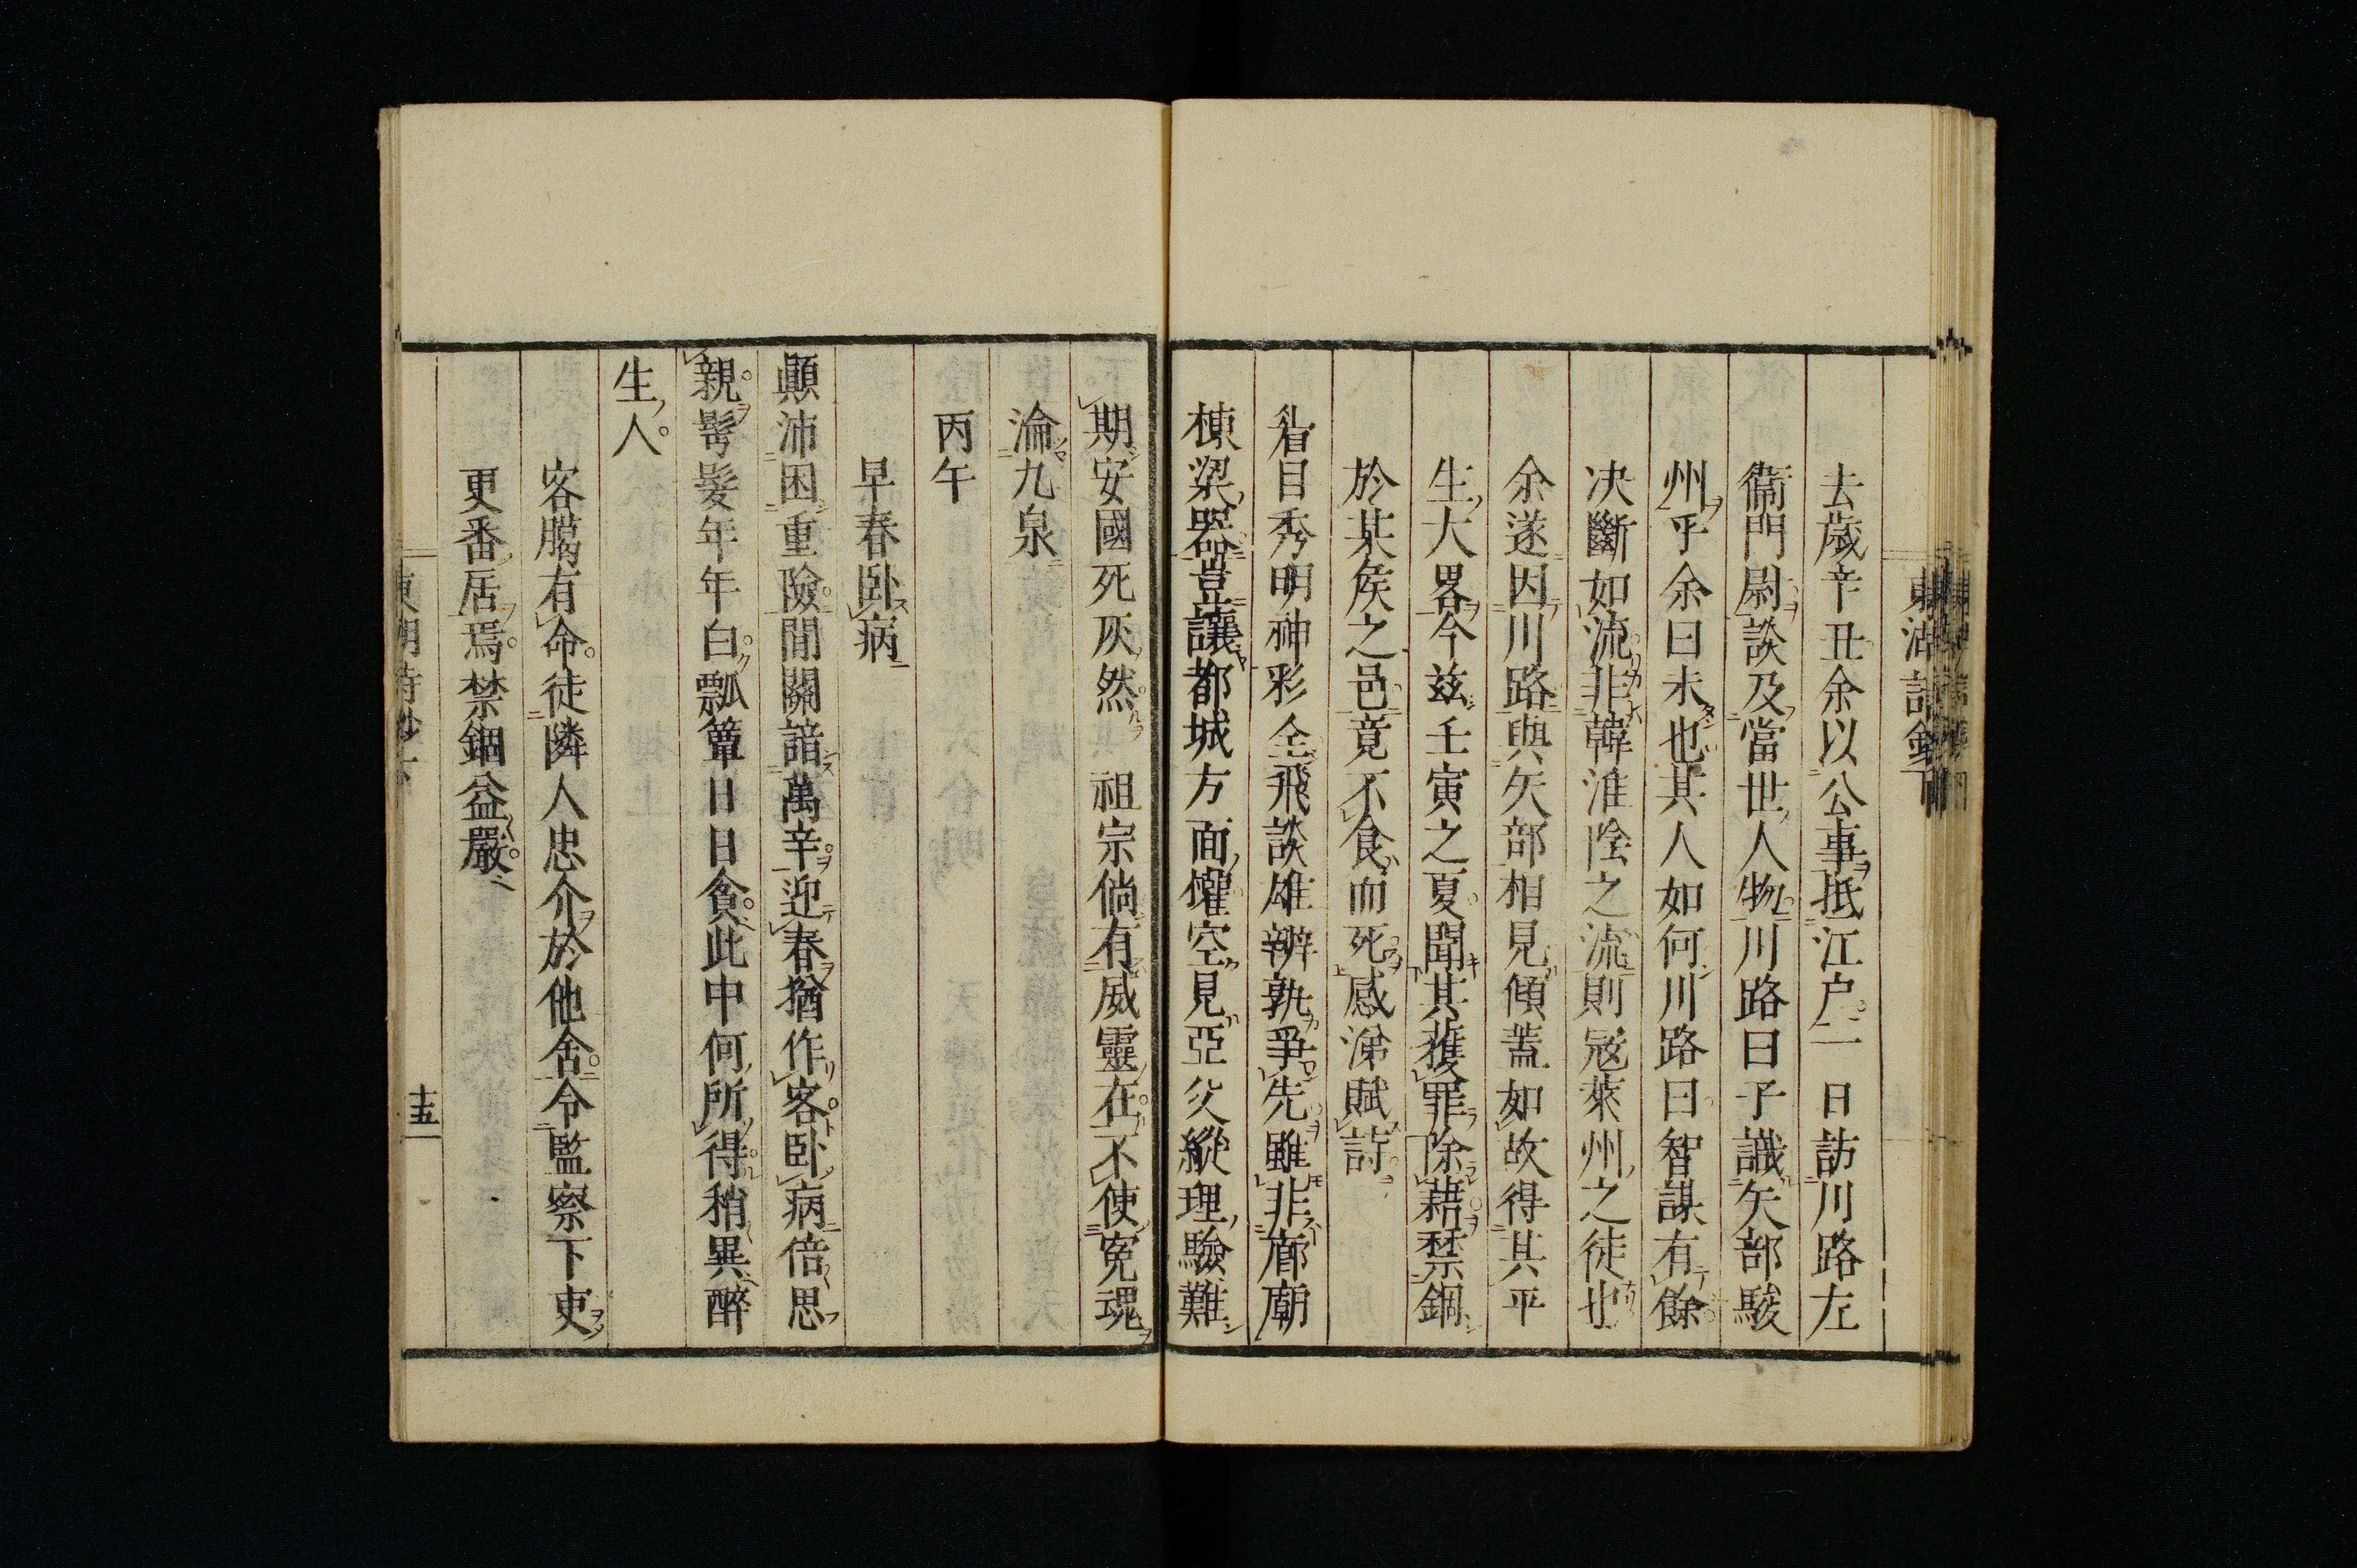 東湖詩鈔下
去歲辛丑余以公事抵江戶一日訪川路左
衞門尉談及當世人物川路曰子識矢部駿
州乎余曰未也其人如何川路曰智謀有餘
决斷如流非韓淮陰之流則冦萊州之徒也
余遂因川路與矢部相見傾蓋如故得其平
生大畧今兹壬寅之夏聞其獲罪除藉禁錮
於某矦之邑竟不食而死感涕賦詩
眉目秀明神彩全飛談雄辨孰爭先雖非廊廟
棟梁器豈讓都城方面權空見亞父縱理驗難
期安國死灰然祖宗倘有威靈在不使寃魂
淪九泉
丙午
早春卧病
顚沛困重險間關諳萬辛迎春猶作客卧病倍思
親鬢髮年年白瓢簞日日貪此中何所得稍異醉
生人
客臘有命徒隣人忠介於他舍令監察下吏
更番居焉禁錮益嚴
東湖詩鈔下
十五